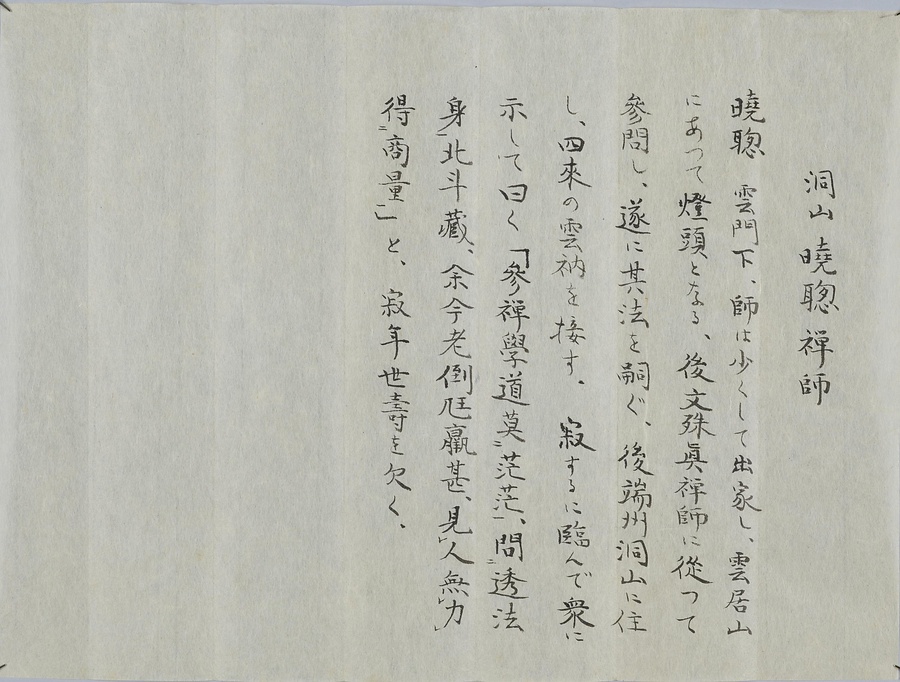 洞山 曉聰禪師
曉聰 雲門下、師は少くして出家し、雲居山
にあつて燈頭となる、後文殊眞禪師に從つて
參問し、遂に其法を嗣ぐ、後端州洞山に住
し、四來の雲衲を接す、寂するに臨んで衆に
示して曰く「參禪學道莫二茫茫一、問二透法
身一北斗藏、余今老倒尫羸甚、見レ人無レ力レ
得二商量一」と、寂年世壽を欠く、